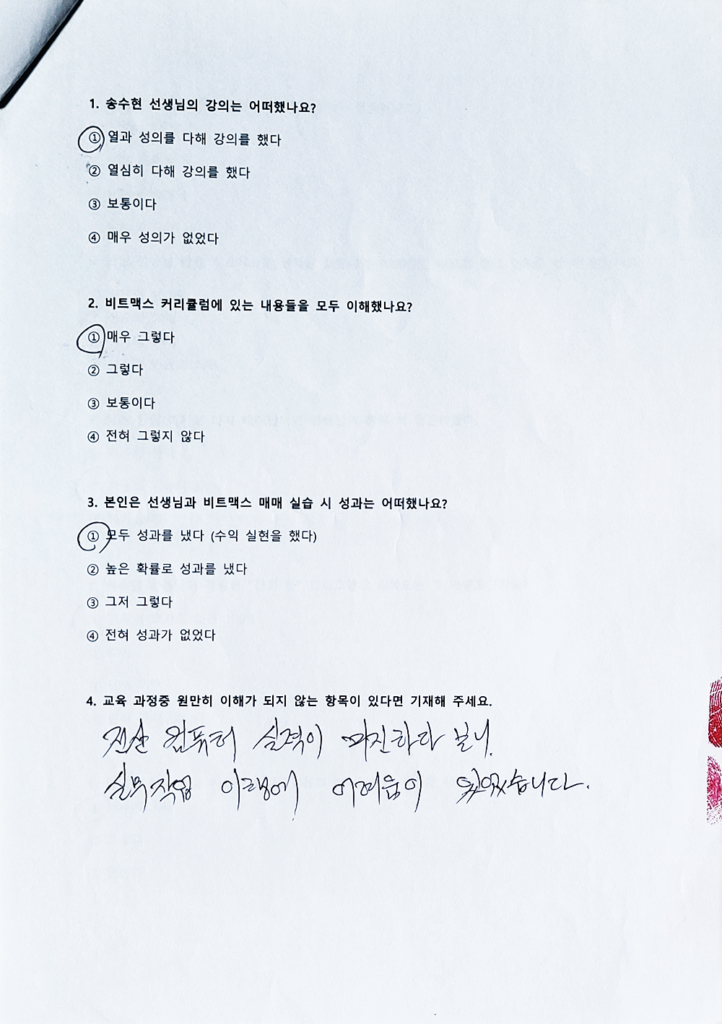 1. 송수현 선생님의 강의는 어떠했나요?
① 열과 성의를 다해 강의를 했다
② 열심히 다해 강의를 했다
③ 보통이다
④ 매우 성의가 없었다
2. 비트맥스 커리큘럼에 있는 내용들을 모두 이해했나요?
① 매우 그렇다
② 그렇다
③ 보통이다
④ 전혀 그렇지 않다
3. 본인은 선생님과 비트맥스 매매 실습 시 성과는 어떠했나요?
① 모두 성과를 냈다 (수익 실현을 했다)
② 높은 확률로 성과를 냈다
③ 그저 그렇다
④ 전혀 성과가 없었다
4. 교육 과정중 원만히 이해가 되지 않는 항목이 있다면 기재해 주세요.
전산 컴퓨터 실력이 미진하다 보니
실무작업 이행에 어려움이 있었습니다.